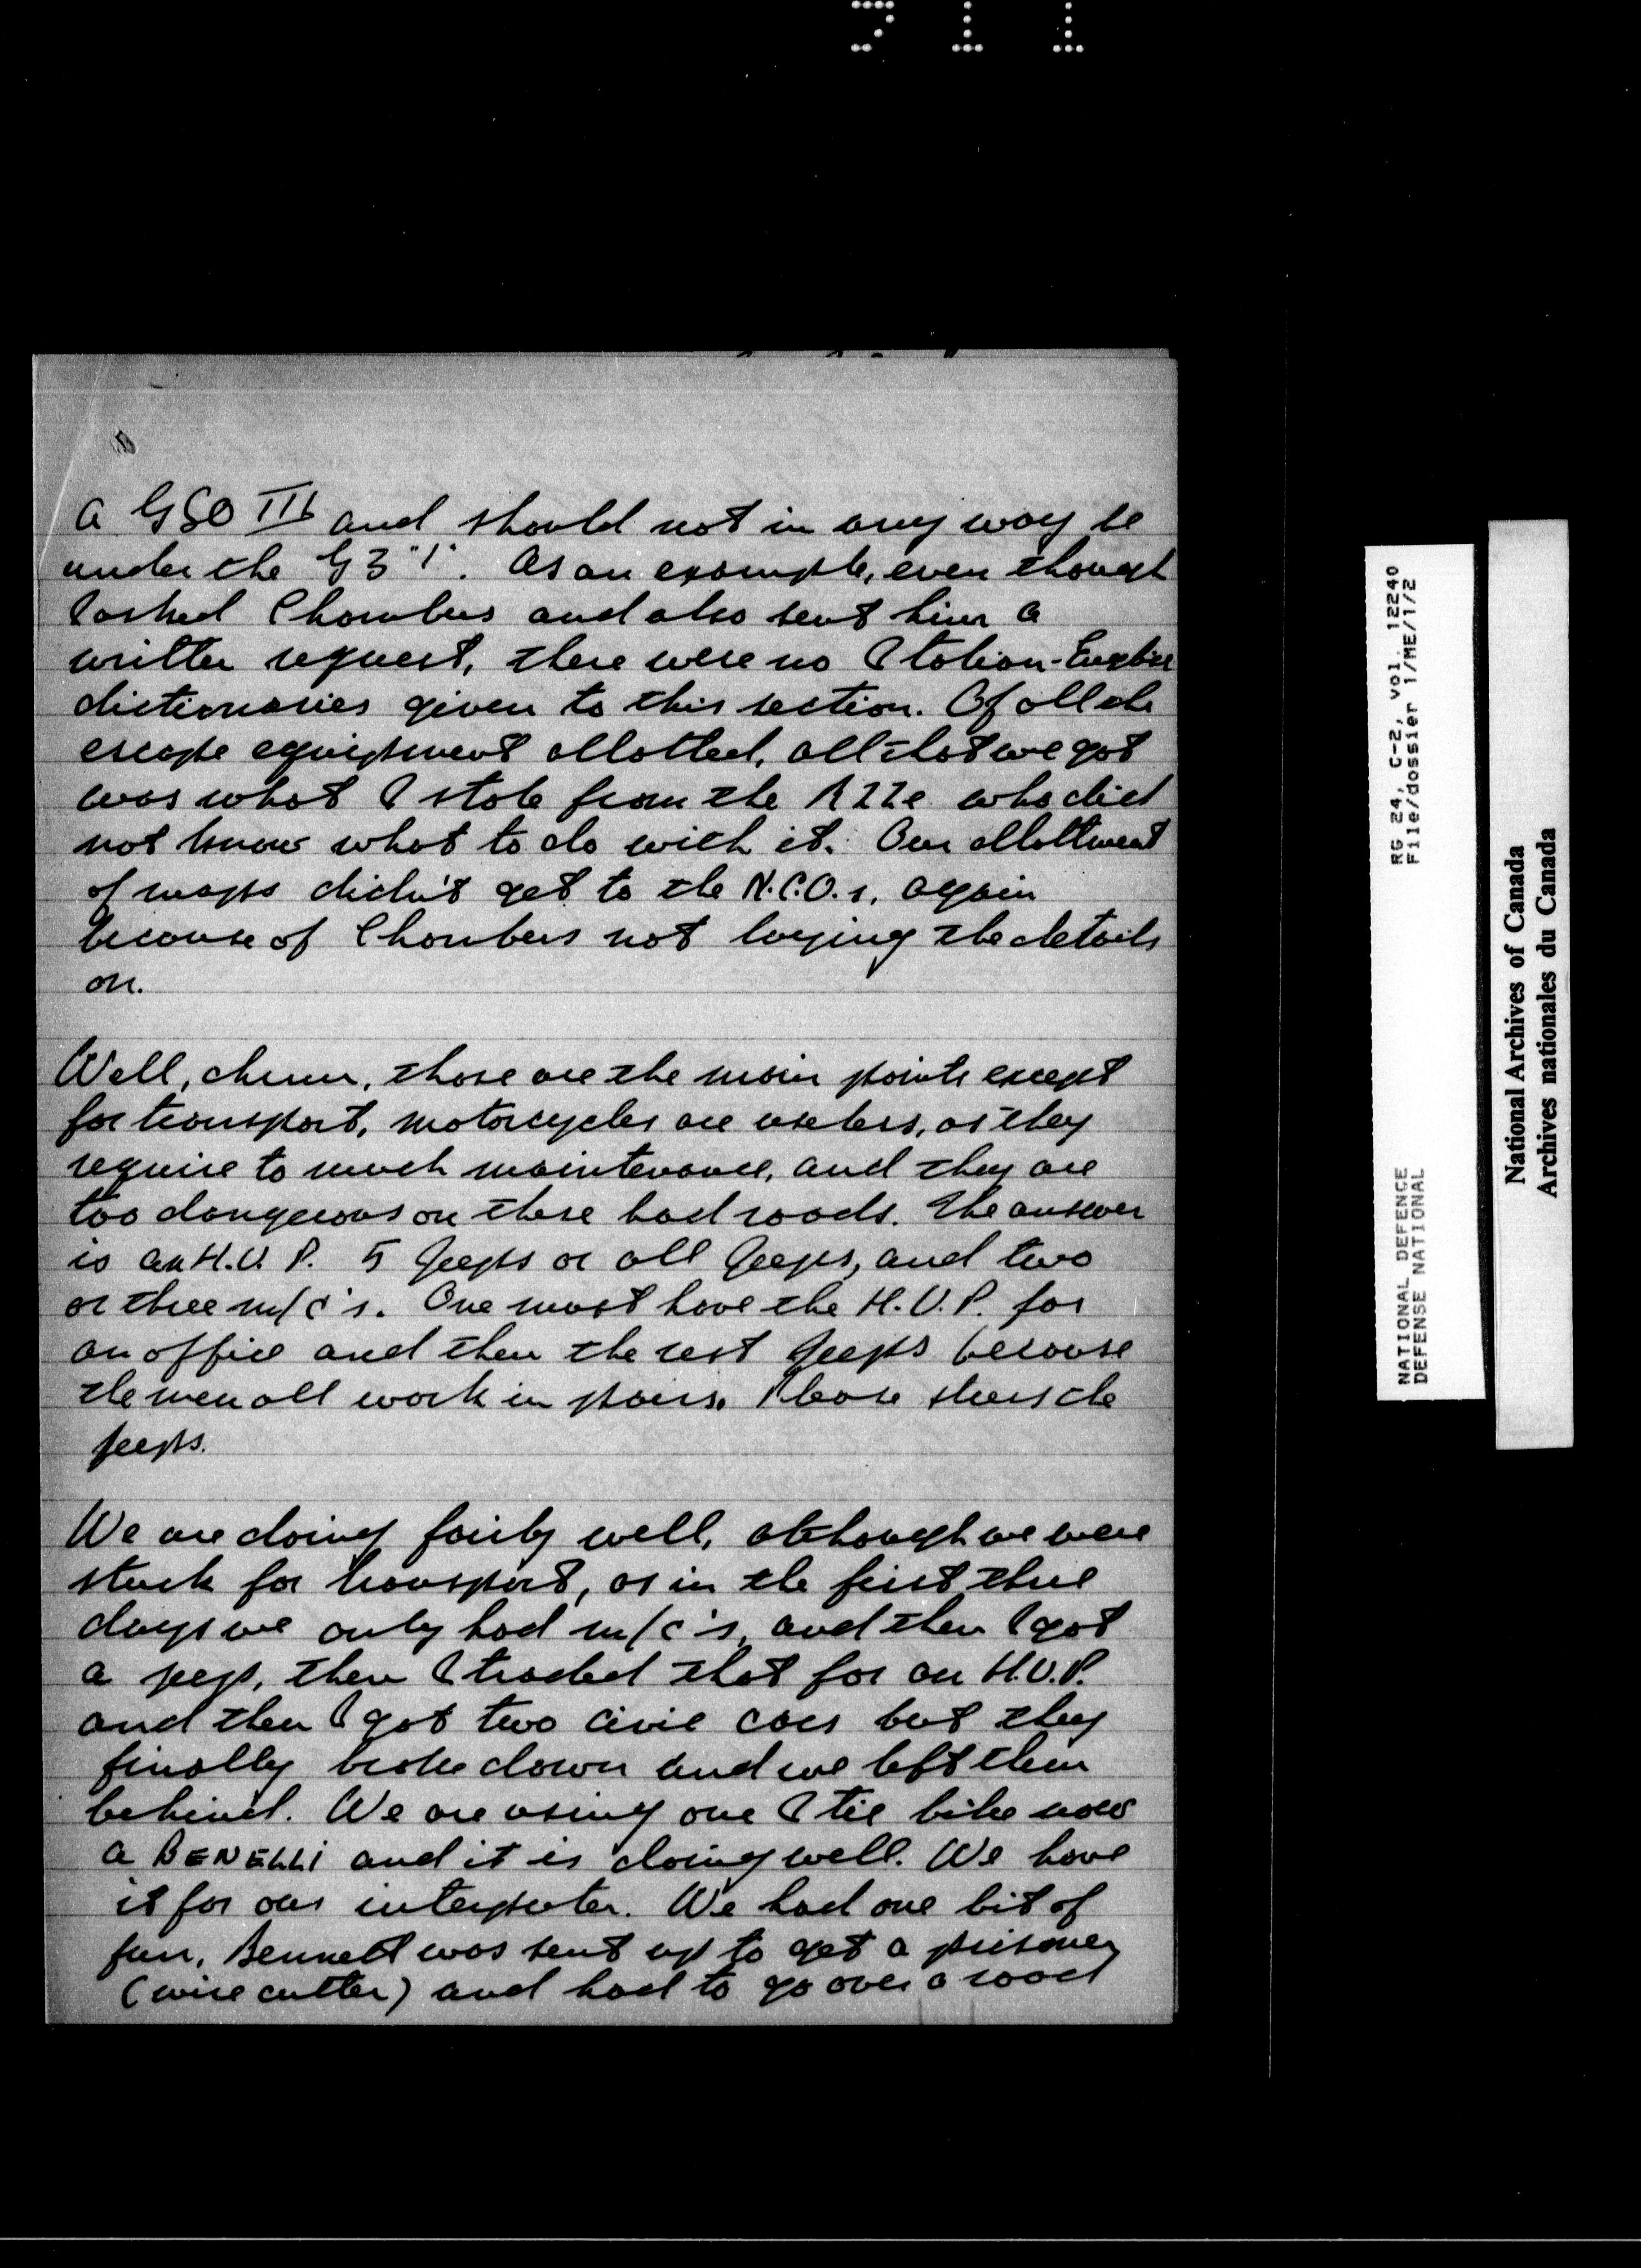 a GSO III and should not in any way be
under the G3 "I". As an example, even though
I asked Chambers and also sent him a
written request, there were no Italian-English
dictionaries given to this section. Of all the
escape equipment allotted, all that we got
was what I stole from the R22e who did
not know what to do with it. Our allottment
of maps didn't get to the N.C.O.s, again
because of Chambers not laying the details
on.
Well, chum, those are the main points except
for transport, motorcycles are useless, as they
require to much maintenance, and they are
too dangerous on these bad roads. The answer
is an H.U.P. 5 Jeeps or all Jeeps, and two
or three m/c's. One must have the H.U.P. for
an office and then the rest Jeeps because
the men all work in pairs. Please stress the
jeeps.
We are doing fairly well, although we were
stuck for transport, as in the first three
days we only had m/c's, and then I got
a jeep, then I traded that for an H.U.P.
and then I got two civie cars but they
finally broke down and we left them
behind. We are using one Itie bike now
a BENELLI and it is doing well. We have
it for our interpreter. We had one bit of
fun, Bennett was sent up to get a prisoner
(wire cutter) and had to go over a road
RG 24, C-2, vol. 12240
File/dossier 1/ME/1/2
NATIONAL DEFENCE
DEFENSE NATIONAL
National Archives of Canada
Archives nationales du Canada